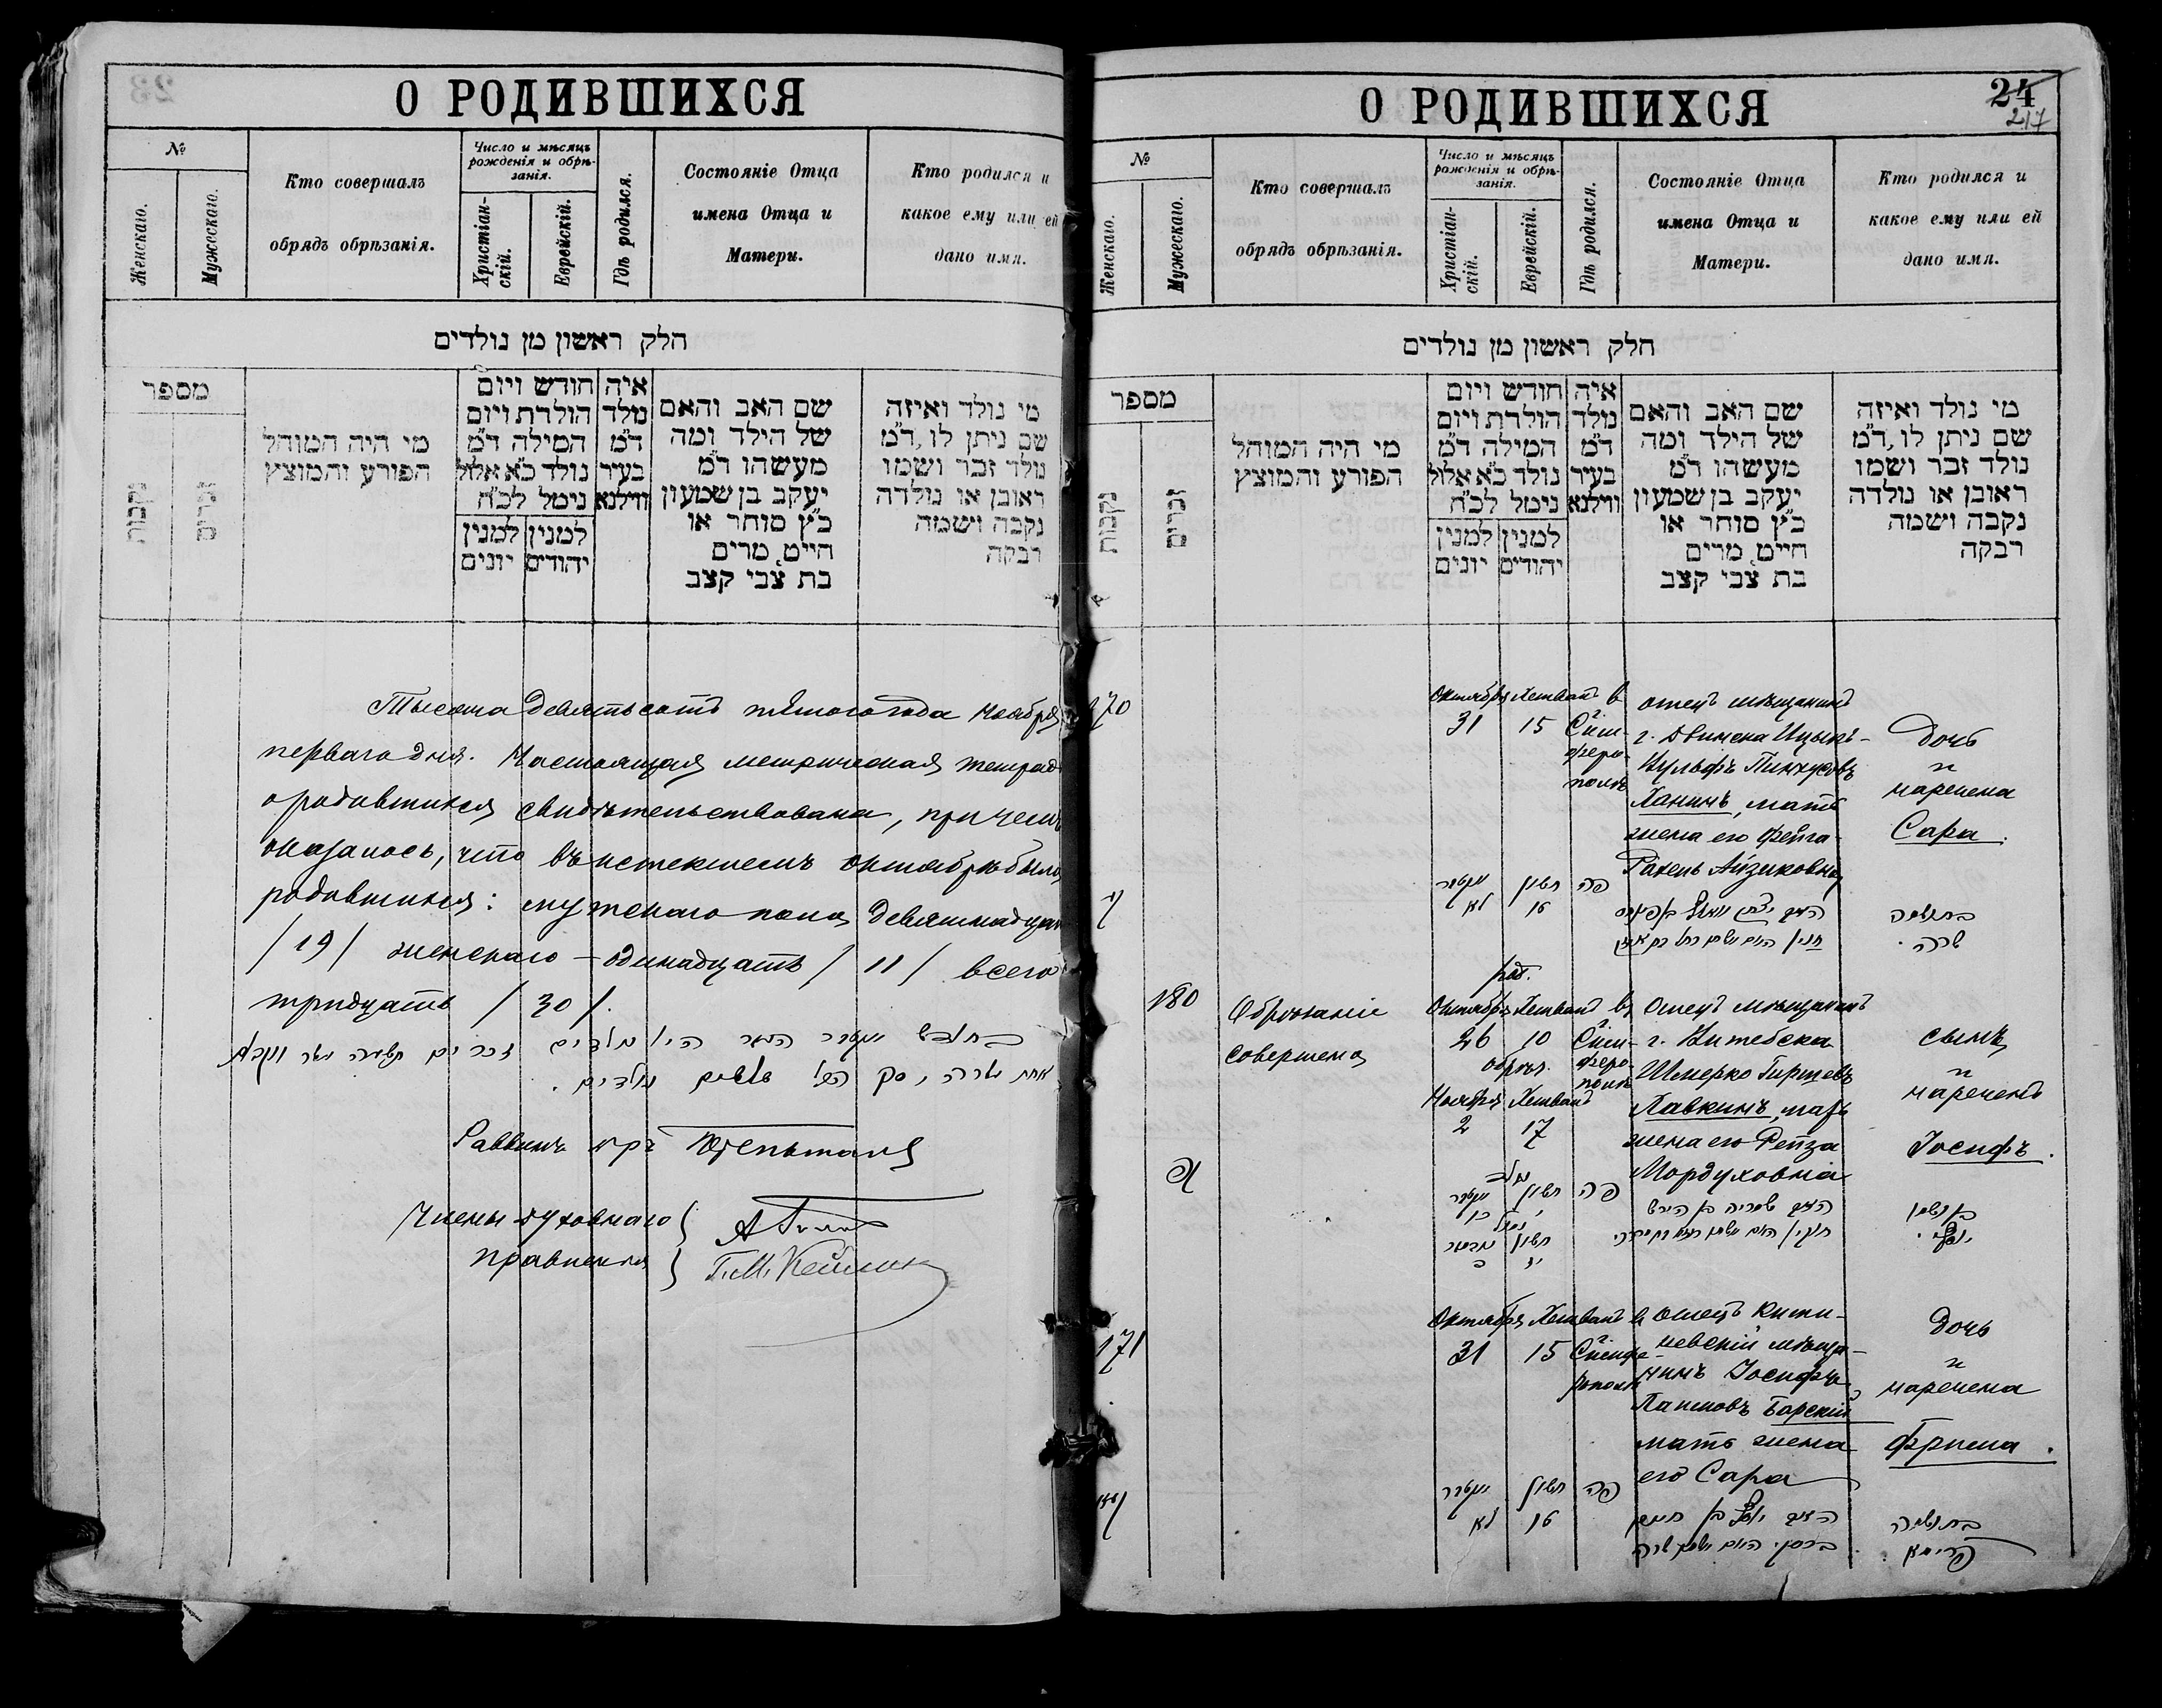 О РОДИВШИХСЯ
№
Женскаго.
Мужескаго.
Кто совершалъ
обрядъ обрѣзанія.
Число и мѣсяцъ
рожденія и обрѣ-
занія.
Христіан-
скій.
Еврейскій.
Гдѣ родился.
Состояніе Отца
имена Отца и
Матери.
Кто родился и
какое ему или ей
дано имя.
חלק ראשון מן נולדים
מספר
נקבות
זכרים
מי היה המוהל
הפורע והמוצץ
חודש ויום
הולדת ויום
המילה ד״מ
נולד כ״א אלול
נימל לכ״ח
למנין
יהודים
למנין
יונים
איה
נולד
ד״מ
בעיר
ווילנא
שם האב והאם
של הילד ומה
מעשהו ד״מ
יעקב בן שמעון
כ״ץ סוחר או
חייט, מרים
בת צבי קצב
מי נולד ואיזה
שם ניתן לו, ד״מ
נולד זכר ושמו
ראובן או נולדה
נקבה וישמה
רבקה
Тысяча девятьсотъ пятаго года ноября
перваго дня. Настоящая метрическая тетрадь
о родившихся свидѣтельствована, при чемъ
оказалось, что въ истекшемъ октябрѣ было
родившихся: мужскаго пола девятнадцать
/19/ женскаго – одинадцать /11/ всего
тридцать /30/.
Раввинъ
Члены духовнаго
правленія
О РОДИВШИХСЯ
24
217
№
Женскаго.
Мужескаго.
Кто совершалъ
обрядъ обрѣзанія.
Число и мѣсяцъ
рожденія и обрѣ-
занія.
Христіан-
скій.
Еврейскій.
Гдѣ родился.
Состояніе Отца
имена Отца и
Матери.
Кто родился и
какое ему или ей
дано имя.
חלק ראשון מן נולדים
מספר
נקבות
זכרים
מי היה המוהל
הפורע והמוצץ
חודש ויום
הולדת ויום
המילה ד״מ
נולד כ״א אלול
נימל לכ״ח
למנין
יהודים
למנין
יונים
איה
נולד
ד״מ
בעיר
ווילנא
שם האב והאם
של הילד ומה
מעשהו ד״מ
יעקב בן שמעון
כ״ץ סוחר או
חייט, מרים
בת צבי קצב
מי נולד ואיזה
שם ניתן לו, ד״מ
נולד זכר ושמו
ראובן או נולדה
נקבה וישמה
רבקה
170
Октября
31
Хешванъ
15
в г.
Сим-
феро-
полѣ
отецъ мѣщанинъ
г. Двинска Ицыкъ-
Вульфъ Пинхусовъ
Ханинъ, мать
жена его Фейга-
Рахель Айзиковна
Дочь
и
наречена
Сара.
חשון
פה
שרה.
180
Обрѣзаніе
совершено
род.
Октября
26
Хешванъ
10
обрѣз.
Ноября
2
Хешванъ
17
в г.
Сим-
феро-
полѣ
отецъ мѣщанинъ
г. Витебска
Шмерко Гиршевъ
Хавкинъ, мать
жена его Рейза
Мордуховна
сынъ
и
нареченъ
Іосифъ.
חשון
פה
171
Октября
31
Хешванъ
15
в г.
Симфе-
рополѣ
отецъ Киши-
невскій мѣща-
нинъ Іосифъ
Хаимовъ Борскій
мать жена
его Сара
дочь
и
наречена
Фрима.
חשון
פה
פרימא